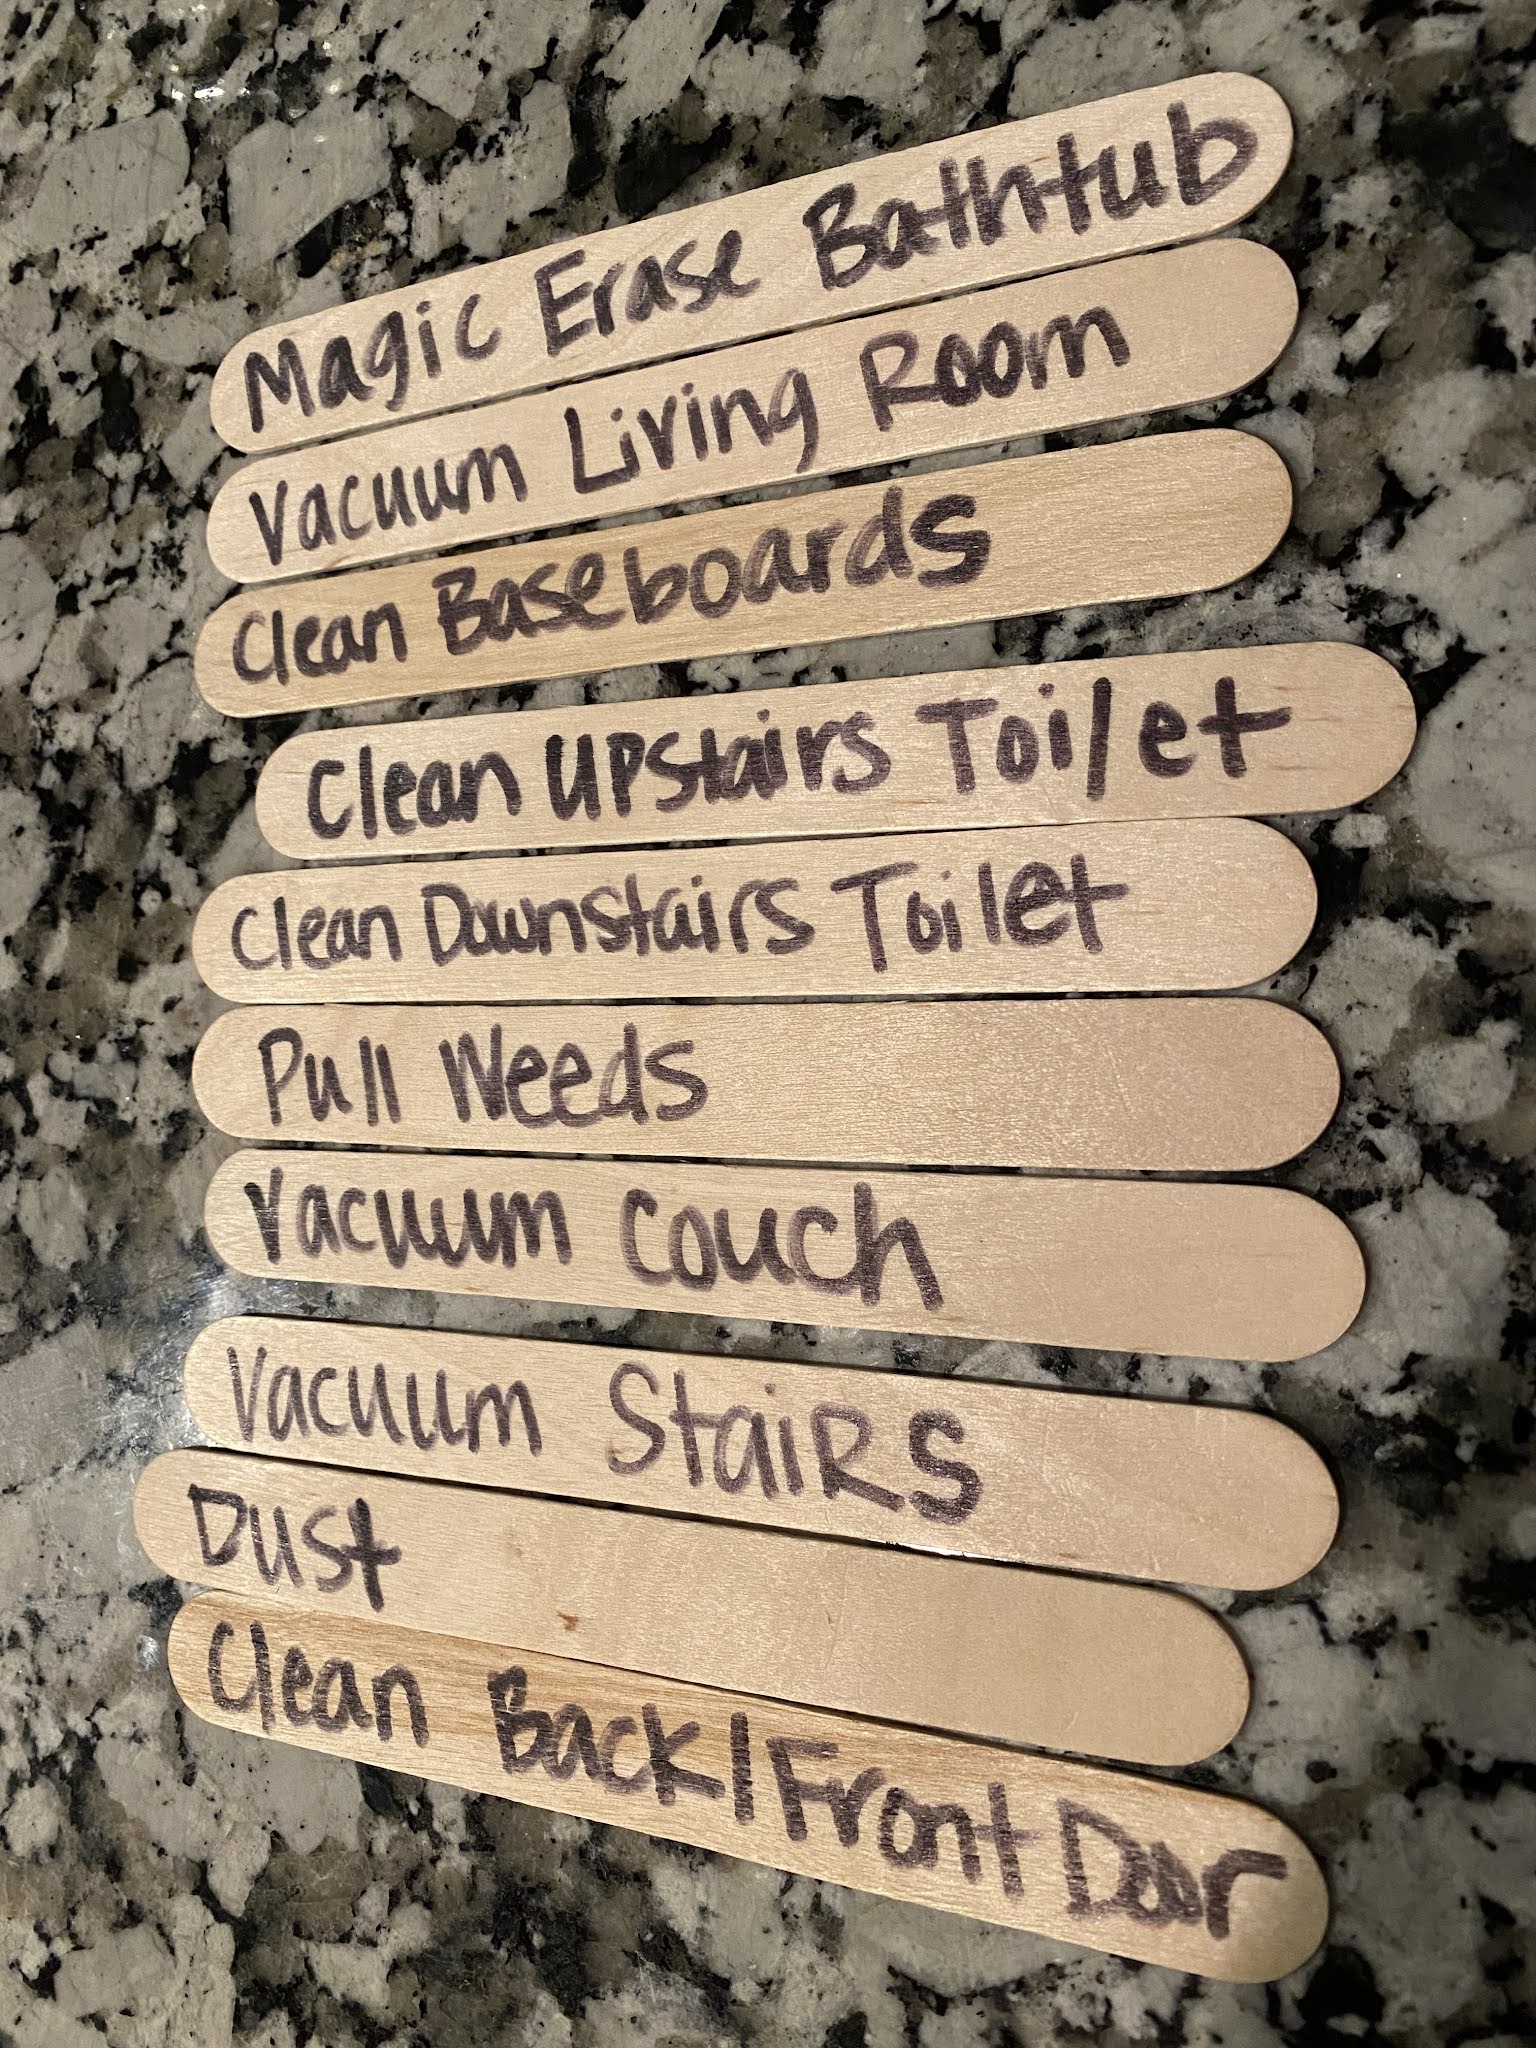 Magic Erase Bathtub
Vacuum Living Room
Clean Baseboards
Clean Upstairs Toilet
Clean Downstairs Toilet
Pull Weeds
Vacuum Couch
Vacuum Stairs
Dust
Clean Back/Front Door